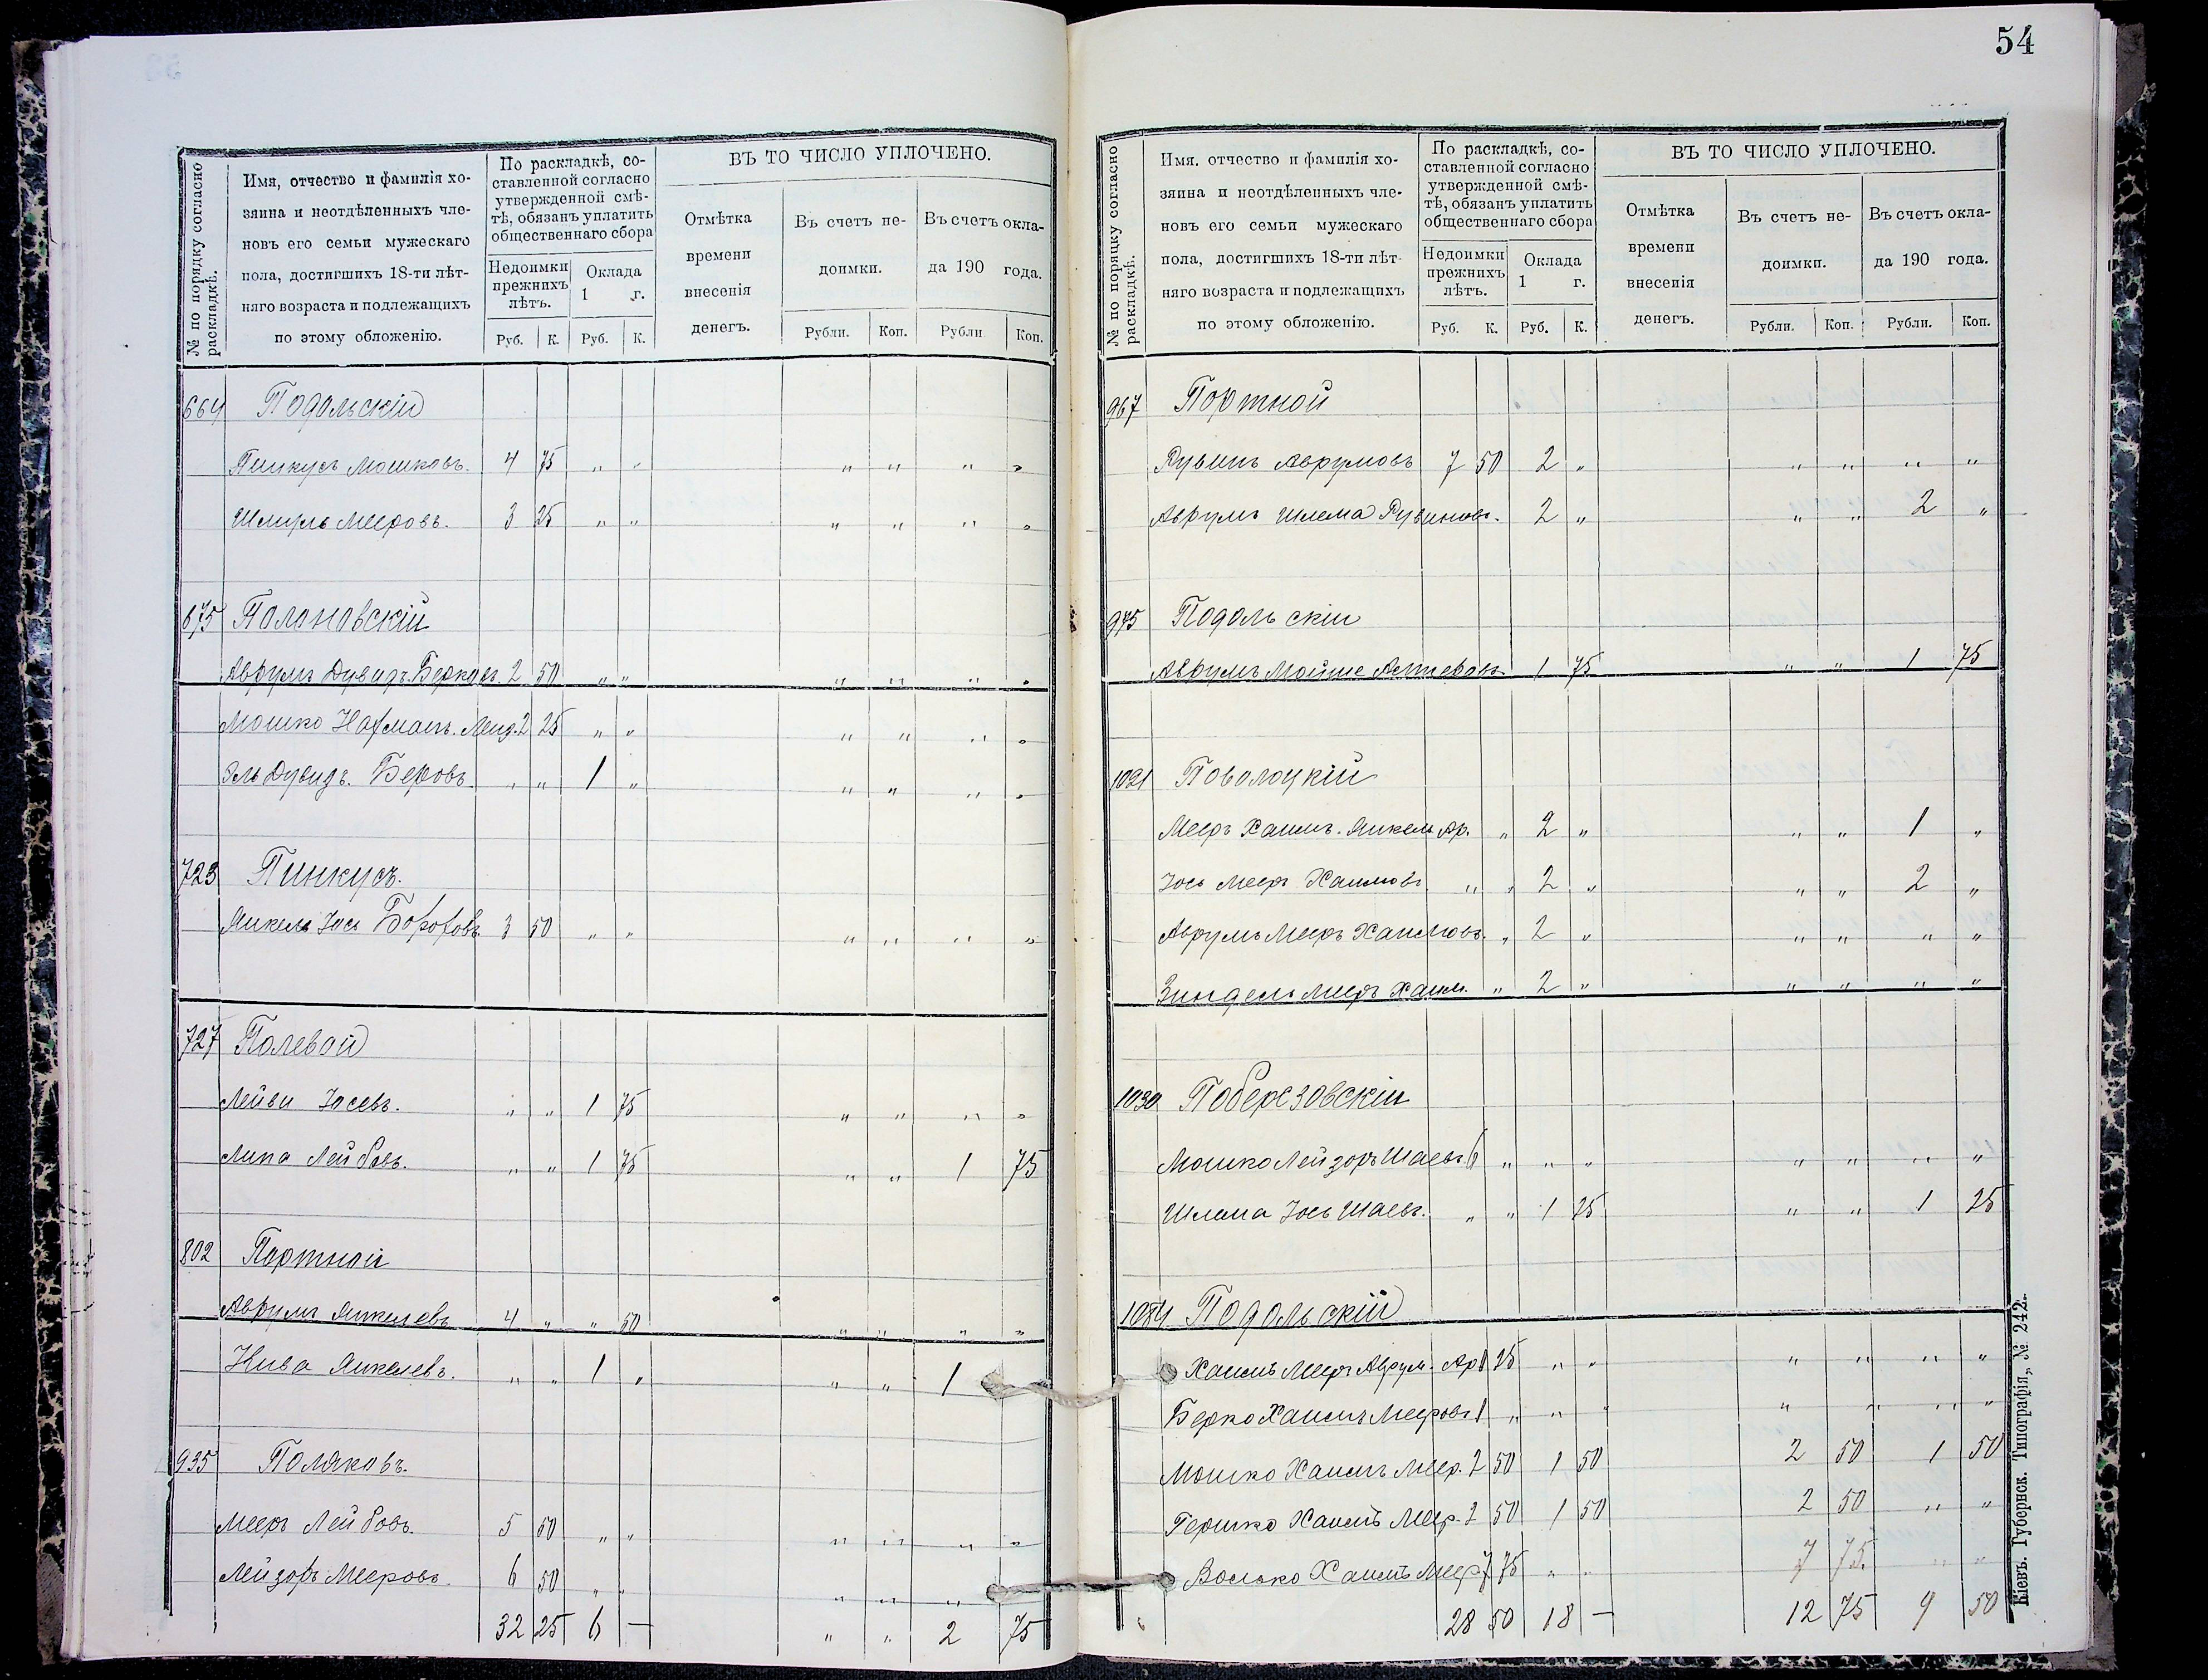 № по порядку согласно раскладкѣ.
Имя, отчество и фамилія хозяина и неотдѣленныхъ членовъ его семьи мужескаго пола, достигшихъ 18-ти лѣтняго возраста и подлежащихъ по этому обложенію.
По раскладкѣ, составленной согласно утвержденной смѣтѣ, обязанъ уплатить общественнаго сбора
Недоимки прежнихъ лѣтъ.
Оклада 1 г.
ВЪ ТО ЧИСЛО УПЛОЧЕНО.
Отмѣтка времени внесенія денегъ.
Въ счетъ недоимки.
Въ счетъ оклада 190 года.
Руб. К. Руб. К. Рубли. Коп. Рубли Коп.
664 Подольскій
Пинкусъ Мошковъ. 4 75 „ „ „ „ „ „
Шмуль Мееровъ. 3 25 „ „ „ „ „ „
675 Полоновскій
Аврумъ Дувидъ Берковъ 2 50 „ „ „ „ „ „
Мошко Нахманъ. 2 25 „ „ „ „ „ „
Эль Дувидъ. Беровъ „ „ 1 „ „ „ „ „
723 Пинкусъ.
Янкель Іось 3 50 „ „ „ „ „ „
727 Полевой
Лейви Іосевъ. „ „ 1 75 „ „ „ „
Липа Лейбовъ. „ „ 1 75 „ „ 1 75
802 Портной
Аврумъ Янкелевъ 4 „ „ 50 „ „ „ „
Кива Янкелевъ. „ „ 1 „ „ „ 1
935 Поляковъ.
Мееръ Лейбовъ. 5 50 „ „ „ „ „ „
Лейзоръ Мееровъ 6 50 „ „ „ „ „
32 25 6 — „ „ 2 75
54
№ по порядку согласно раскладкѣ.
Имя, отчество и фамилія хозяина и неотдѣленныхъ членовъ его семьи мужескаго пола, достигшихъ 18-ти лѣтняго возраста и подлежащихъ по этому обложенію.
По раскладкѣ, составленной согласно утвержденной смѣтѣ, обязанъ уплатить общественнаго сбора
Недоимки прежнихъ лѣтъ.
Оклада 1 г.
ВЪ ТО ЧИСЛО УПЛОЧЕНО.
Отмѣтка времени внесенія денегъ.
Въ счетъ недоимки.
Въ счетъ оклада 190 года.
Руб. К. Руб. К. Рубли. Коп. Рубли. Коп.
967 Портной
Рувинъ Аврумовъ 7 50 2 „ „ „ „ „
Аврумъ Шлема Рувиновъ. 2 „ „ „ 2 „
975 Подольскій
Аврумъ Мойше 1 75 „ „ 1 75
1021 Поволоцкій
Мееръ Хаимъ. Янкель Ар. „ 2 „ „ „ 1 „
Іось Мееръ Хаимовъ „ „ 2 „ „ „ 2 „
Аврумъ Мееръ Хаимовъ. „ 2 „ „ „ „ „
Зиндель Мееръ Хаим. „ 2 „ „ „ „ „
1030 Поберезовскій
Мошко Лейзоръ Шаевъ 6 „ „ „ „ „ „ „
Шлема Іось Шаевъ. „ „ 1 25 „ „ 1 25
1084 Подольскій
Хаимъ Мееръ Аврум. Ар 8 25 „ „ „ „ „ „
Берко Хаимъ Мееровъ 1 „ „ „ „ „ „ „
Мошко Хаимъ Меер. 2 50 1 50 2 50 1 50
Гершко Хаимъ Меер. 2 50 1 50 2 50 „ „
Волько Хаимъ Меер 7 75 „ „ 7 75 „ „
28 50 18 — 12 75 9 50
Кіевъ. Губернск. Типографія, № 242.